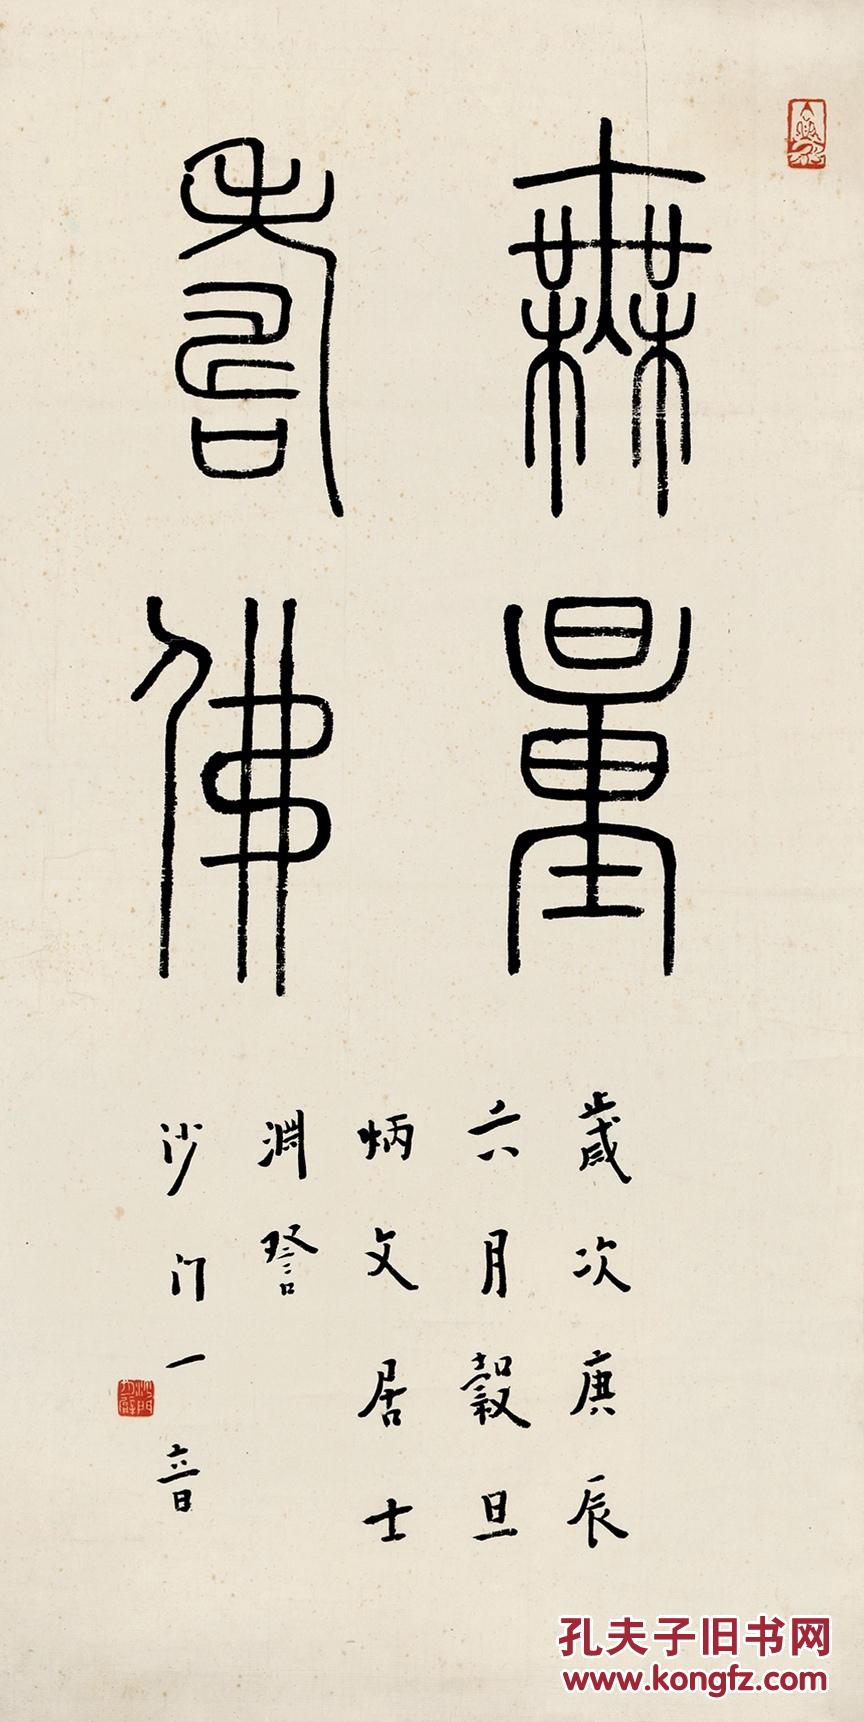 無量
壽佛
歲次庚辰
六月穀旦
炳文居士
淵詧
沙门一音
孔夫子旧书网
www.kongfz.com